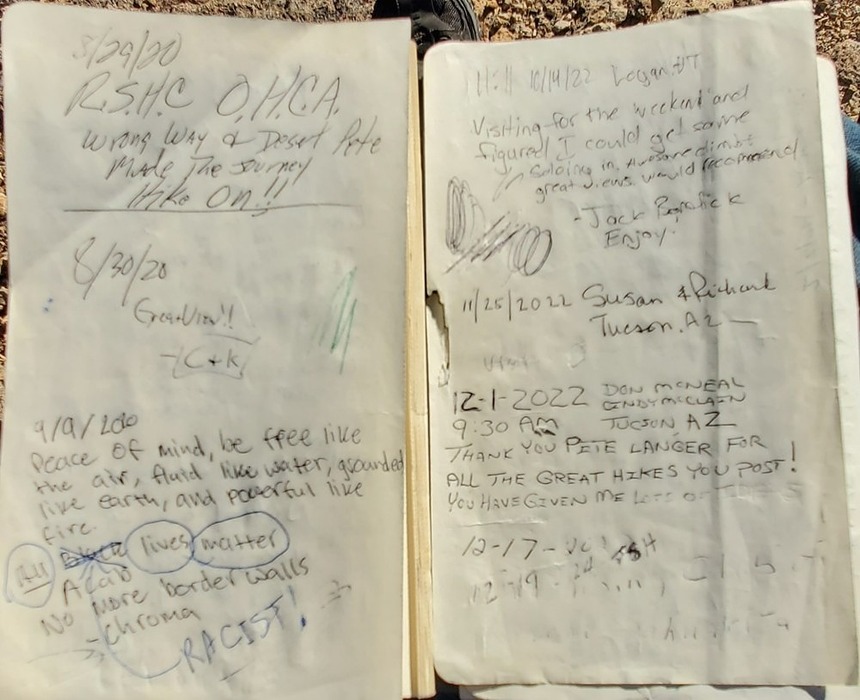 8/29/20
R.S.H.C O.H.C.A.
Wrong Way & Desert Pete
Made The Journey
Hike On!!
8/30/20
Great View!!
-C+K
9/9/2020
Peace of mind, be free like
the air, fluid like water, grounded
like earth, and powerful like
fire.
All Black lives matter
Acab
No more border walls
-Chroma
RACIST!
11:11 10/14/22 Logan UT
Visiting for the weekend and
figured I could get some
soloing in, Awesome climb +
great views. would recommend
-Jack
Enjoy.
11/25/2022 Susan & Richard
Tucson, AZ
12-1-2022 DON MCNEAL
CINDY MCCLAIN
9:30 AM TUCSON AZ
THANK YOU PETE LANGER FOR
ALL THE GREAT HIKES YOU POST!
YOU HAVE GIVEN ME LOTS OF
12-17-
12-19-